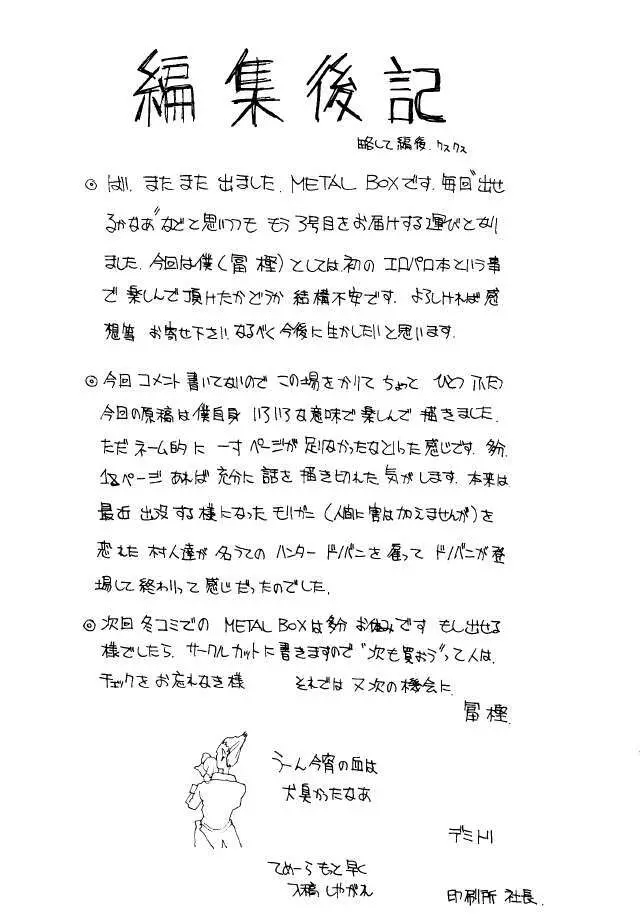 編集後記
略して編後.クスクス
◎ はい、またまた 出ました、METAL BOXです。毎回"出せ
るかなあ"などと思いつつも もう3号目をお届けする運びとなり
ました。今回は僕(冨樫)としては初の エロパロ本という事
で 楽しんで頂けたかどうか 結構不安です。よろしければ感
想等 お寄せ下さい。なるべく今後に生かしたいと思います。
◎今回 コメント書いてないので この場をかりて ちょっと ひとつ ふたつ
今回の原稿は僕自身 いろいろな意味で楽しんで 描きました。
ただネーム的に 一寸 ページが足りなかったなといった感じです。多分、
12ページ あれば 充分に 話を 描き切れた 気がします。本来は
最近 出没する様になった モリガン(人間に害は加えませんが)を
恐れた 村人達が 名うての ハンター ドノバンを 雇って ドノバンが登
場して終わりって感じだったのでした。
◎次回 冬コミでの METAL BOXは多分 お休みです もし出せる
様でしたら、サークルカットに書きますので"次も買おう"って人は、
チェックをお忘れなき様 それでは 又次の機会に
冨樫.
うーん今宵の血は
犬臭かったなあ
デミトリ
てめーらもっと早く
入稿しやがれ
印刷所 社長.